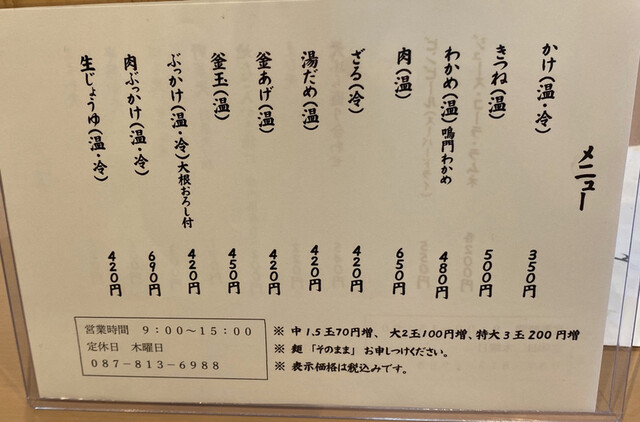 メニュー
かけ(温・冷) 350円
きつね(温) 500円
わかめ(温)鳴門わかめ 480円
肉(温) 650円
ざる(冷) 420円
湯だめ(温) 420円
釜あげ(温) 420円
釜玉(温) 450円
ぶっかけ(温・冷)大根おろし付 420円
肉ぶっかけ(温・冷) 690円
生じょうゆ(温・冷) 420円
※ 中1.5玉70円増、大2玉100円増、特大3玉200円増
※ 麺「そのまま」お申しつけください。
※ 表示価格は税込みです。
営業時間 9:00~15:00
定休日 木曜日
087-813-6988